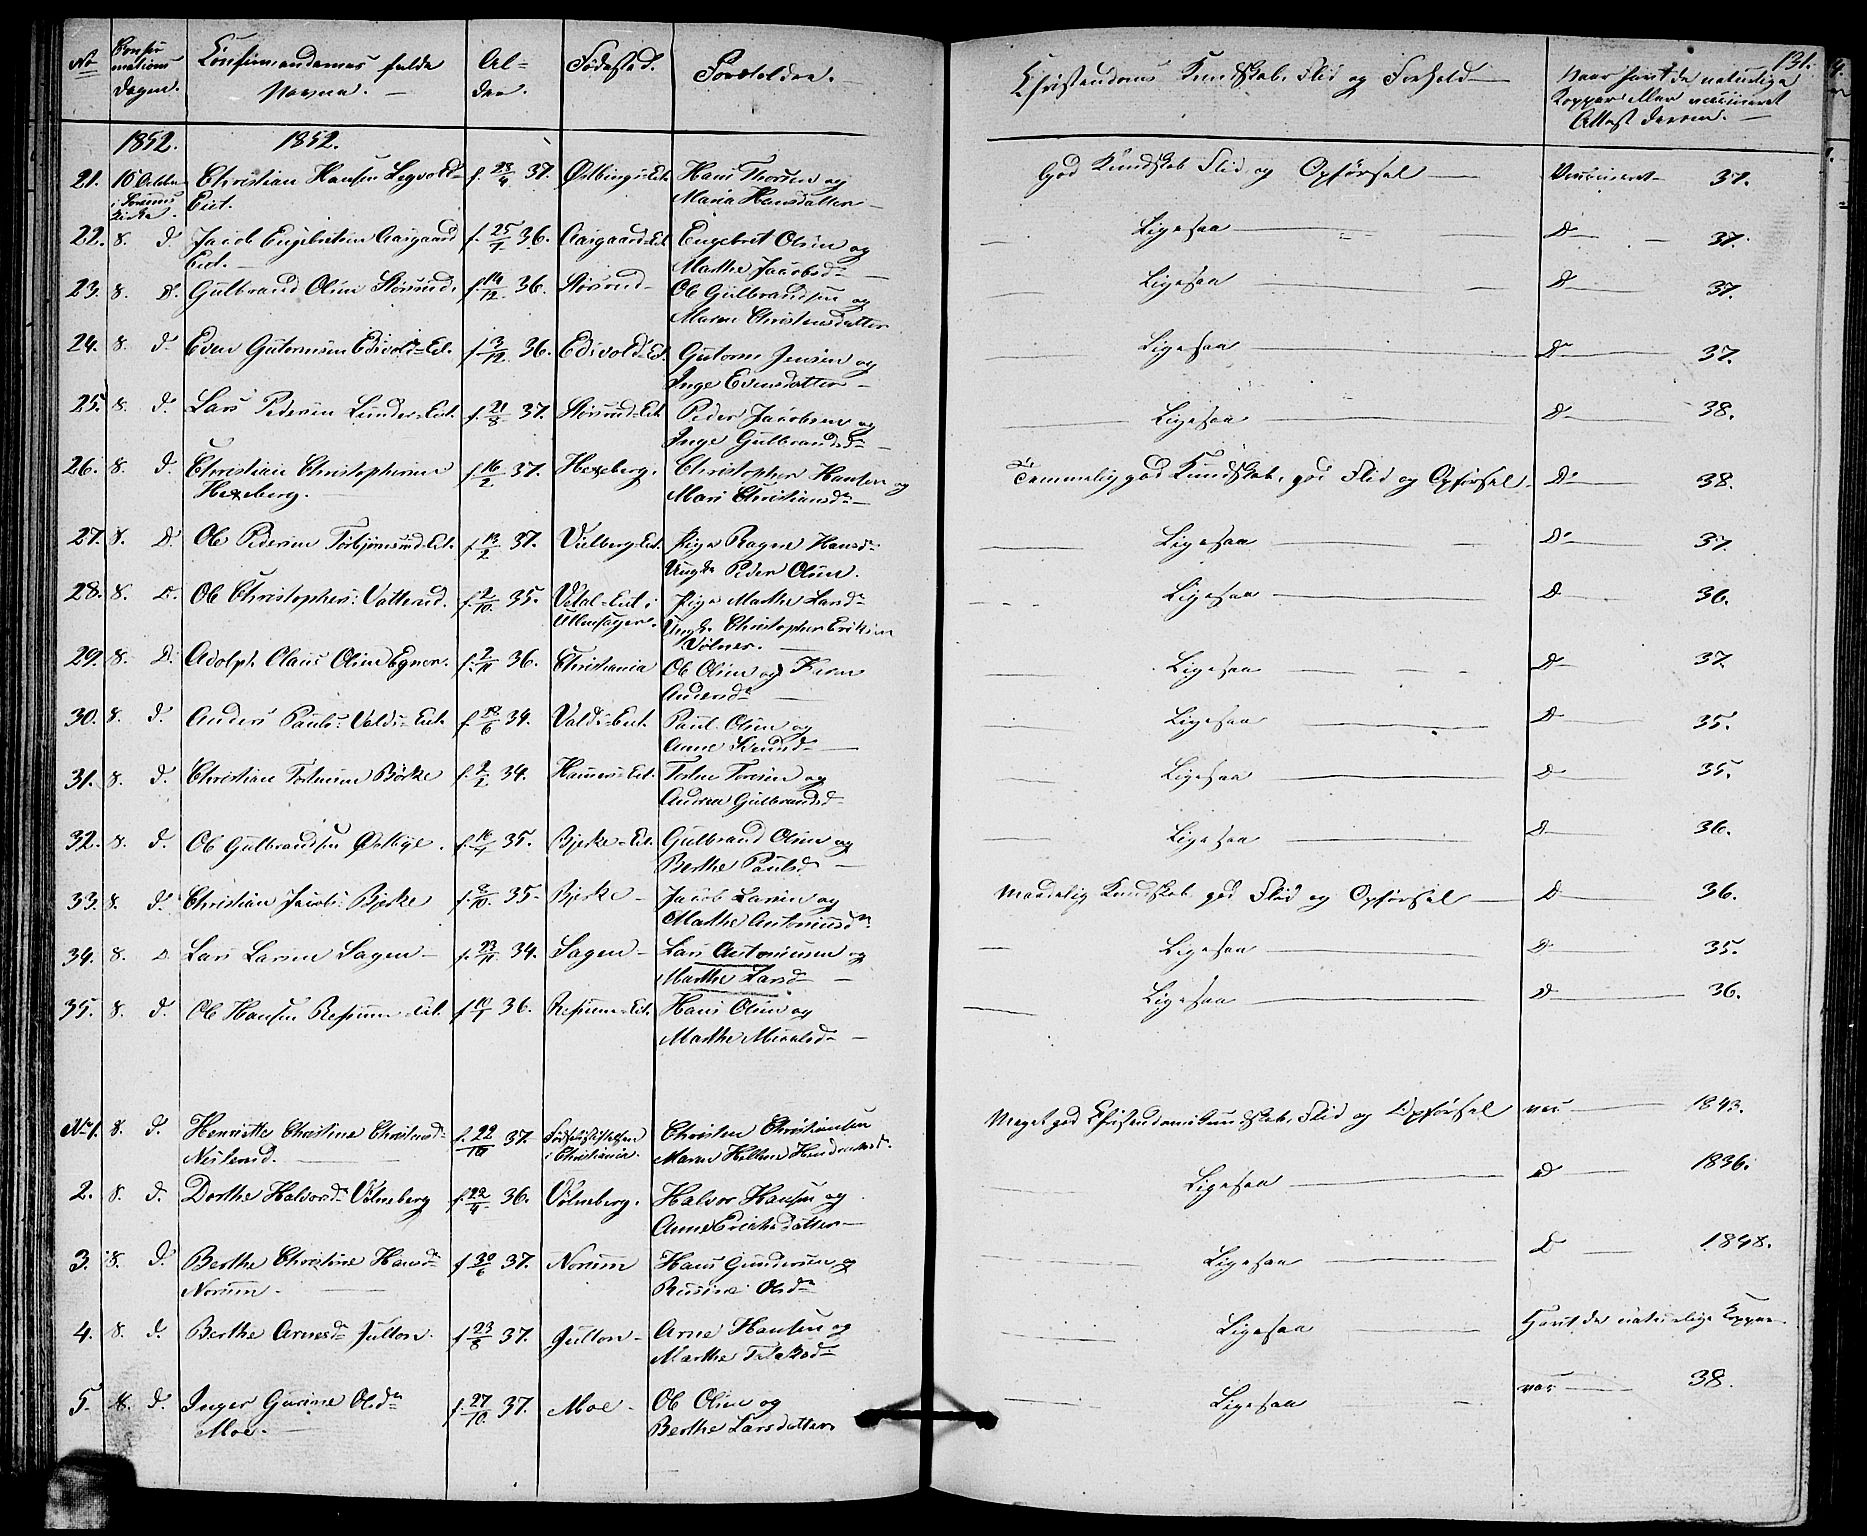 131.
No Confirmations Dagen. Confirmandernes fulde Navne. Alder. Fødested. Forældre. Christendoms Kundskab, Flid og Forhold Naar havt de naturlige Kopper eller vaccineret Attest derom.
1852. 1852.
21. 10 October i Sørums Kirke. Christian Hansen Eiet. f. 23/4 37. Hans Thorsen og Maria Hansdatter God Kundskab Flid og Opførsel Vaccineret 37.
22. 8. d. Jacob Engebretsen Aasgaard Eiet. f. 25/7 36. Aasgaard Eiet Engebret Olsen og Marthe Jacobsd. Ligesaa D 37.
23. 8. d. Gulbrand Olsen f. 14/12 36. Ole Gulbrandsen og Maren Christensdatter Ligesaa D 37.
24. 8. d. Even Gutormsen Edsvold-Eiet. f. 3/12 36. Edsvold-Eiet Gutorm Jensen og Inge Evensdatter Ligesaa D 37.
25. 8. d. Lars Pedersen Eiet. f. 21/8 37. Peder Jacobsen og Inge Gulbrandsd. Ligesaa D 38.
26. 8. d. Christian Christophersen Hexeberg. f. 16/2 37. Hexeberg. Christopher Hansen og Mari Christiansd. Temmelig god Kundskab, god Flid og Opførsel D 38.
27. 8. d. Ole Pedersen Eiet. f. 13/2 37. Vilberg Eiet. Pige Ragne Hansd. Ungk. Peder Olsen. Ligesaa D 37
28. 8. d. Ole Christophers: f. 2/10 35. Eiet i Ullensager. Pige Marthe Larsd. Ungk. Christopher Eriksen Ligesaa D 36.
29. 8. d. Adolph Claus Olsen Egner. f. 2/11 36. Christiania Ole Olsen og Karen Andersd. Ligesaa D 37.
30. 8. d. Anders Pauls: Valds-Eiet. f. 12/6 34. Valds-Eiet. Paul Olsen og Anne Ligesaa D 35.
31. 8. d. Christian Torstensen Børke f. 2/2 34. Eiet. Torsten Toresen og Andrea Gulbrandsd. Ligesaa D 35.
32. 8. d. Ole Gulbrandsen Østbye. f. 35. Bjerke-Eiet. Gulbrand Olsen og Berthe Paulsd. Ligesaa D 36.
33. 8. d. Christian Jacobs: Bjerke f. 8/10 35. Bjerke Jacob Larsen og Marthe Antoniusd. Maadelig Kundskab god Flid og Opførsel D 36.
34. 8. d. Lars Larsen Sagen f. 23/11 34. Sagen Lars Antoniusen og Marthe Larsd. Ligesaa D 35.
35. 8. d. Ole Hansen Refsum-Eiet. f. 36. Refsum-Eiet. Hans Olsen og Marthe Ligesaa D 36.
No 1. 8. d. Henriette Christine Christensd. f. 22/10 37. Fødselsstiftelsen i Christiania. Christen Christiansen Maren Hellene Meget god Christendomskundskab, Flid og Opførsel vac 1843.
2. 8. d. Dorthe Halvorsd. Vølneberg f. 22/4 36. Vølneberg. Halvor Hansen og Anne Erichsdatter Ligesaa D 1836.
3. 8. d. Berthe Christine Hansd. Norum. f. 30/6 37. Norum Hans Gundersen og Olsd. Ligesaa D 1848.
4. 8. d. Berthe Arnesd. Julton. f. 23/8 37. Julton Arne Hansen og Marthe Ligesaa Havt de naturlige Kopper.
5. 8. d. Inger Gurine Olsd. Moe. f. 27/10 37. Moe Ole Olsen og Berthe Larsdatter Ligesaa vac 38.